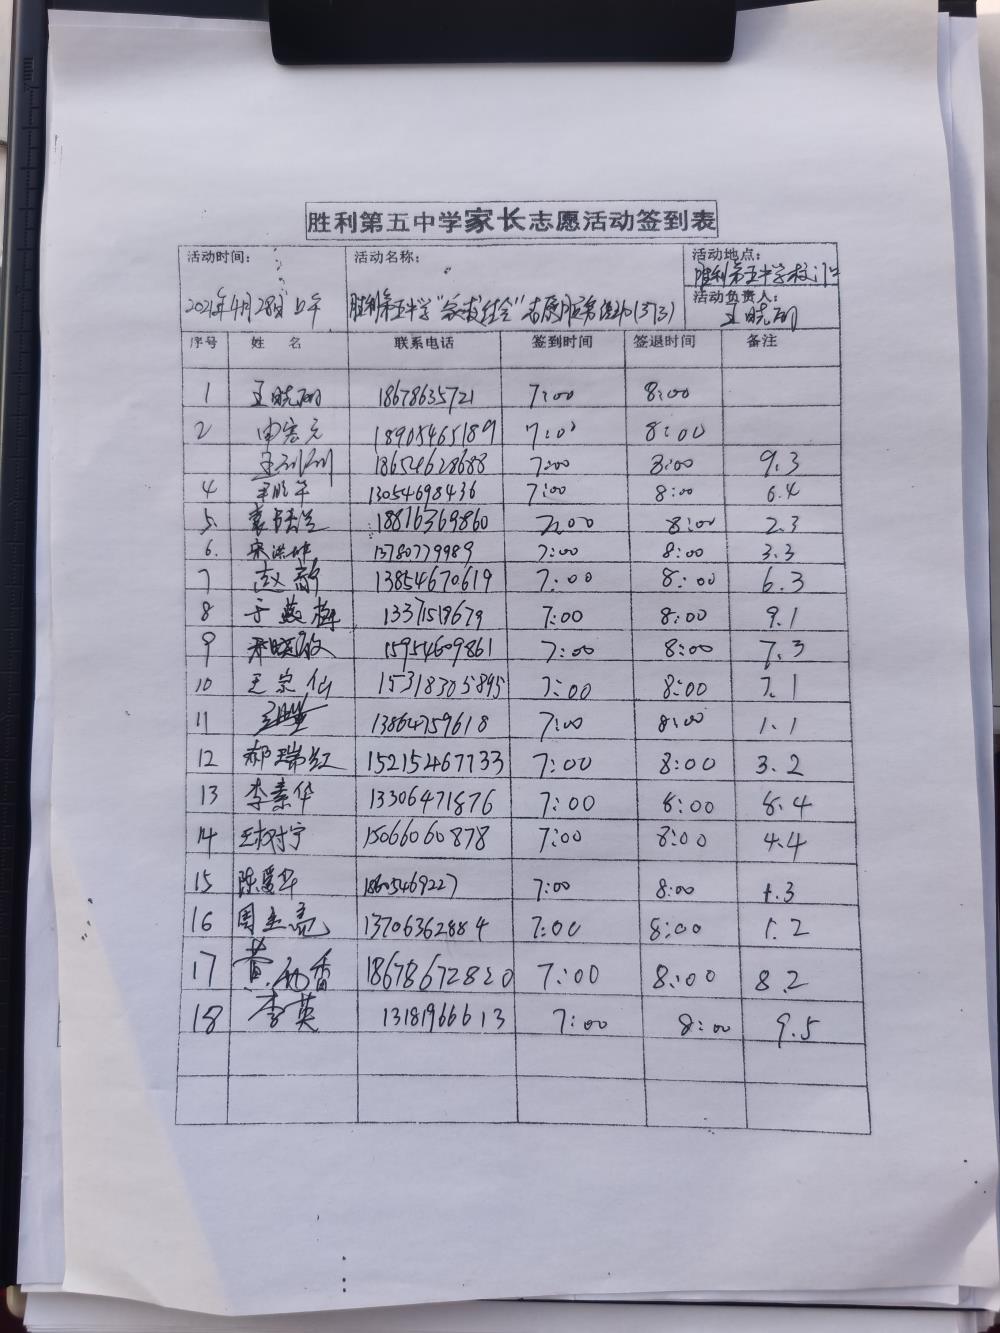 胜利第五中学家长志愿活动签到表
活动时间： 活动名称： 活动地点：
胜利第五中学校门口
2021年4月28日 上午 胜利第五中学"家校结合"志愿服务活动(373) 活动负责人：
王晓丽
序号 姓 名 联系电话 签到时间 签退时间 备注
1 王晓丽 18678635721 7:00 8:00
2 18905465189 7:00 8:00
18654628688 7:00 8:00 9.3
4 13054698436 7:00 8:00 6.4
5. 18816369860 7:00 8:00 2.3
6. 13780779989 7:00 8:00 3.3
7 赵 13854670619 7:00 8:00 6.3
8 于 梅 13371519679 7:00 8:00 9.1
9 15954609861 7:00 8:00 7.3
10 王宗仙 15318305895 7:00 8:00 7.1
11 13864759618 7:00 8:00 1.1
12 郝瑞红 15215467733 7:00 8:00 3.2
13 李素华 13306471876 7:00 8:00 8.4
14 王树宁 15066060878 7:00 8:00 4.4
15 陈爱华 18605469227 7:00 8:00 1.3
16 周 亮 13706362884 7:00 8:00 1.2
17 黄 香 18678672820 7:00 8:00 8.2
18 李英 13181966613 7:00 8:00 9.5